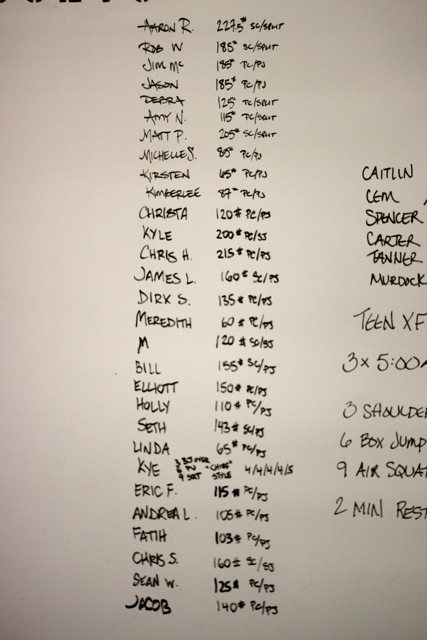 AARON R. 227.5# SC/SPLIT
ROB W 185# SC/SPLIT
JIM Mc 185# PC/PJ
JASON 185# PC/PJ
DEBRA 125# TC/SPLIT
AMY N. 115# TC/SPLIT
MATT P. 205# SC/SPLIT
MICHELLE S. 85# PC/PJ
KIRSTEN 65# PC/PJ
KIMBERLEE 87# PC/PJ
CHRISTA 120# PC/PJ
KYLE 200# PC/SJ
CHRIS H. 215# PC/PJ
JAMES L. 160# SC/PJ
DIRK S. 135# PC/PJ
MEREDITH 60# PC/PJ
M 120# SC/SJ
BILL 155# SC/PJ
ELLIOTT 150# PC/PJ
HOLLY 110# PC/PJ
SETH 143# SC/PJ
LINDA 65# PC/PJ
KYE "CHIEF" STYLE 4/4/4/4/5
ERIC F. 115# PC/PJ
ANDREA L. 105# PC/PJ
FATIH 103# PC/PJ
CHRIS S. 160# SC/SJ
SEAN W. 125# PC/PJ
JACOB 140# PC/PJ
CAITLIN
CEM
SPENCER
CARTER
TANNER
MURDOCK
TEEN XF
3 x 5:00
3 SHOULDE
6 BOX JUMP
9 AIR SQUAT
2 MIN REST